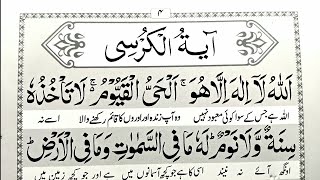 ۴
آیَةُ الْکُرْسِی
اَللّٰهُ لَاۤ اِلٰهَ اِلَّا هُوَ ۚ اَلْحَیُّ الْقَیُّوْمُ ۚ لَا تَاْخُذُهٗ
الله ہے جس کے سوا کوئی معبود نہیں وہ آپ زندہ اور اوروں کا قائم رکھنے والا اسے نہ
سِنَةٌ وَّلَا نَوْمٌ ؕ لَهٗ مَا فِی السَّمٰوٰتِ وَمَا فِی الْاَرْضِ ؕ
اونگھ آئے نہ نیند اسی کا ہے جو کچھ آسمانوں میں ہے اور جو کچھ زمین میں